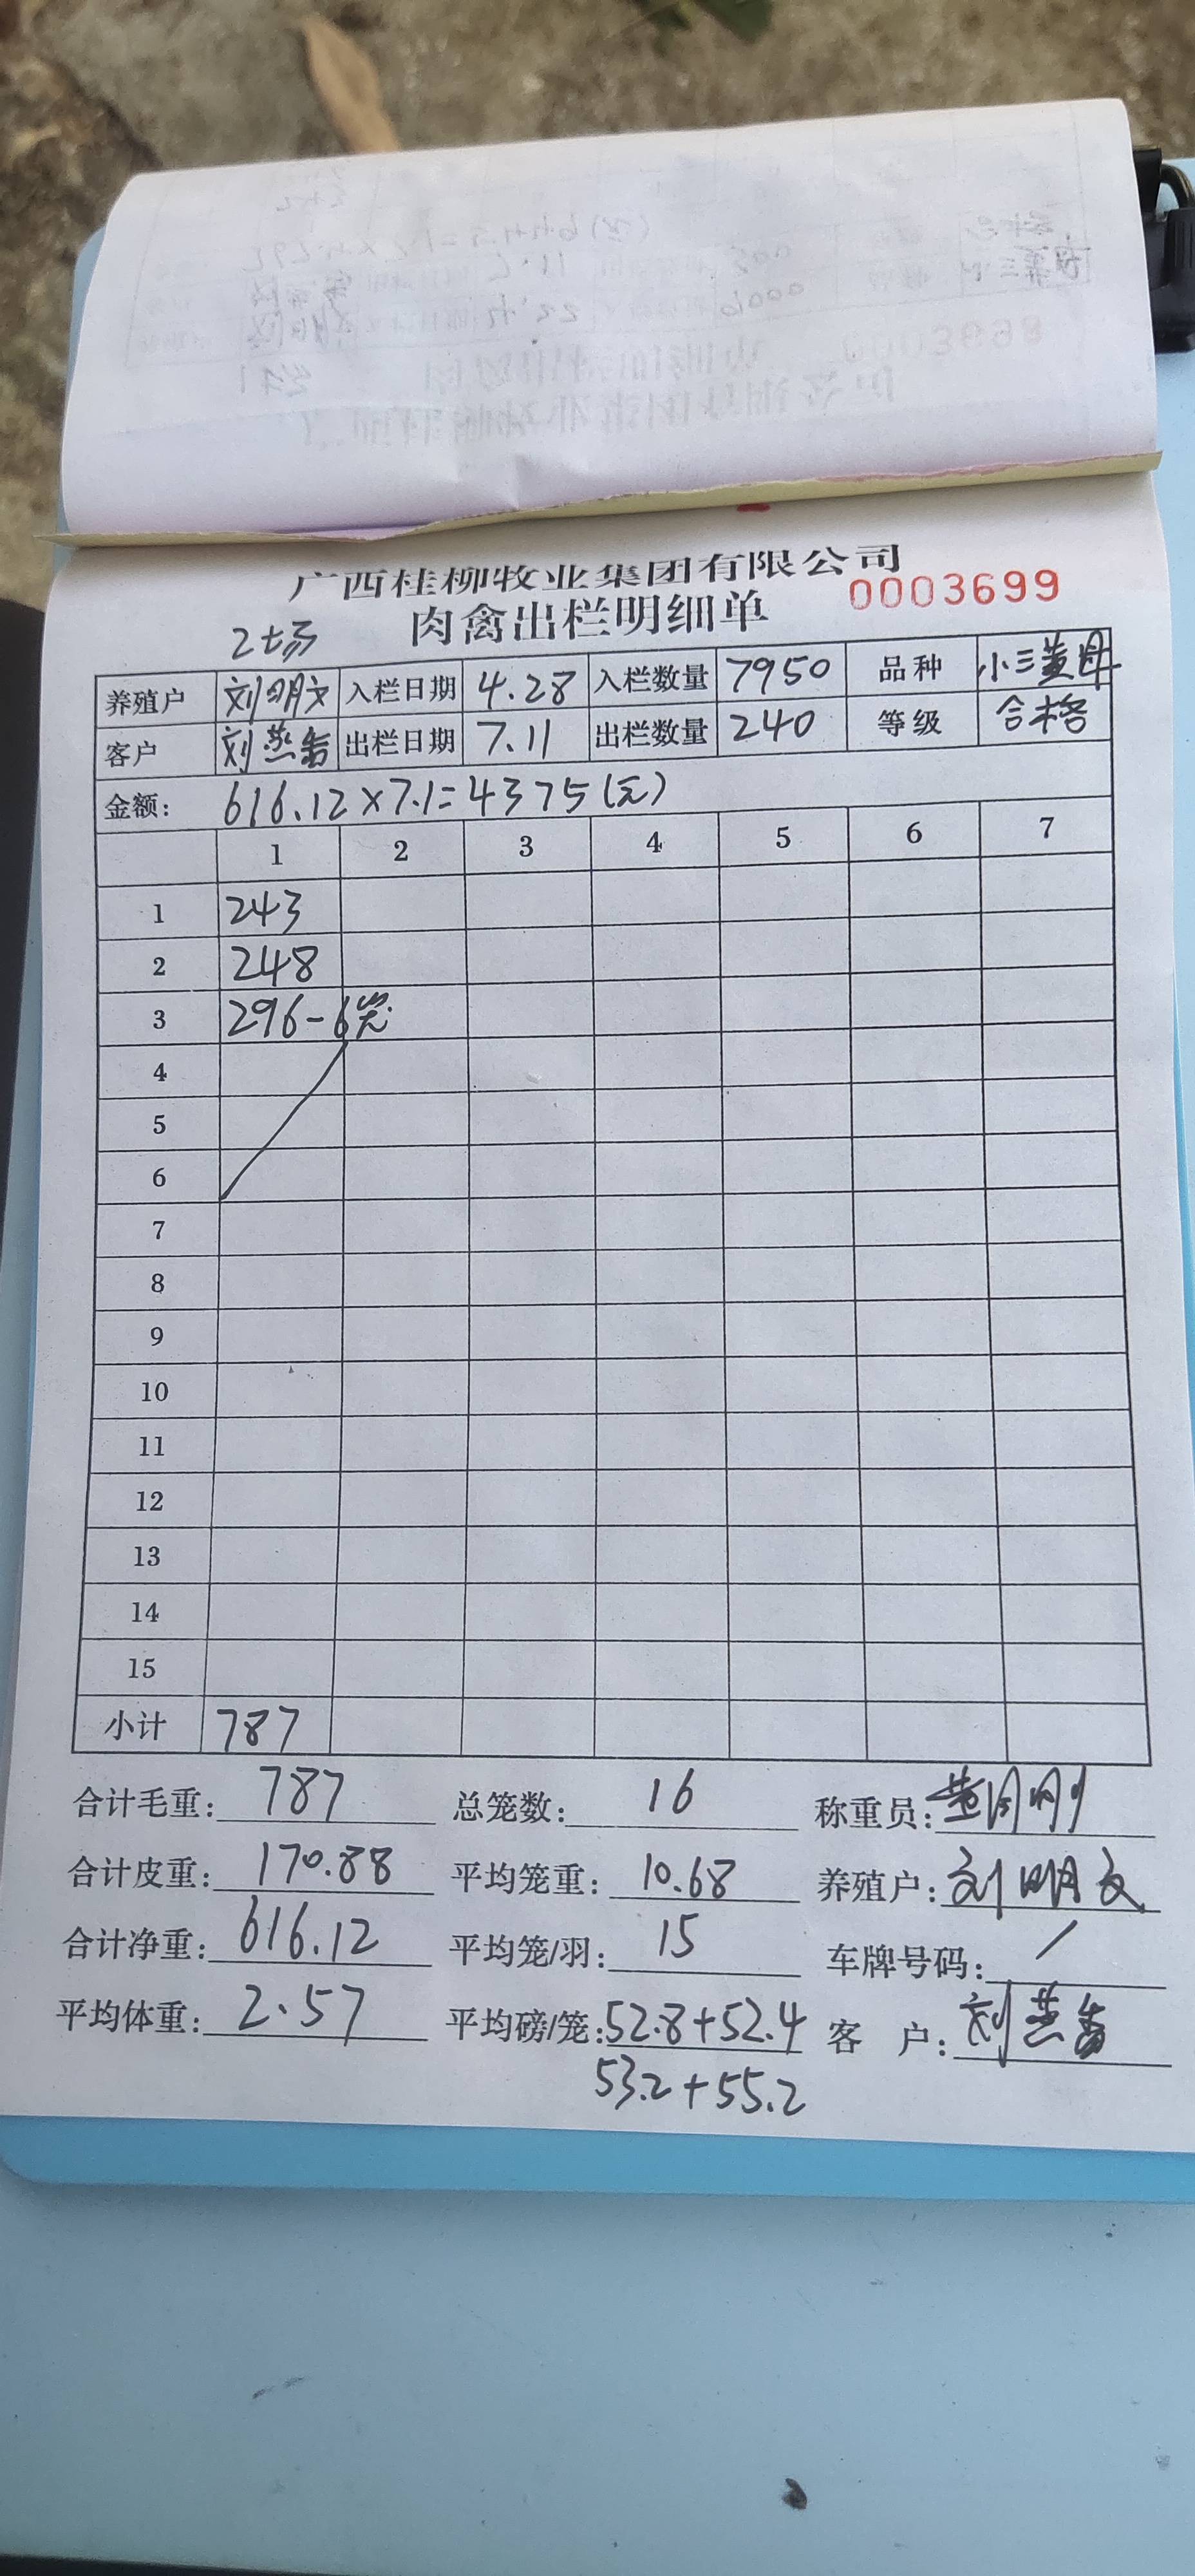 广西桂柳牧业集团有限公司
肉禽出栏明细单 0003699
2场
养殖户 刘明文 入栏日期 4.28 入栏数量 7950 品种 小三黄母
客户 刘燕 出栏日期 7.11 出栏数量 240 等级 合格
金额: 616.12×7.1=4375(元)
1 2 3 4 5 6 7
1 243
2 248
3 296-6笼
4
5
6
7
8
9
10
11
12
13
14
15
小计 787
合计毛重: 787 总笼数: 16 称重员:
合计皮重: 170.88 平均笼重: 10.68 养殖户: 刘明文
合计净重: 616.12 平均笼/羽: 15 车牌号码: /
平均体重: 2.57 平均磅/笼: 52.8+52.4 客 户: 刘燕
53.2+55.2